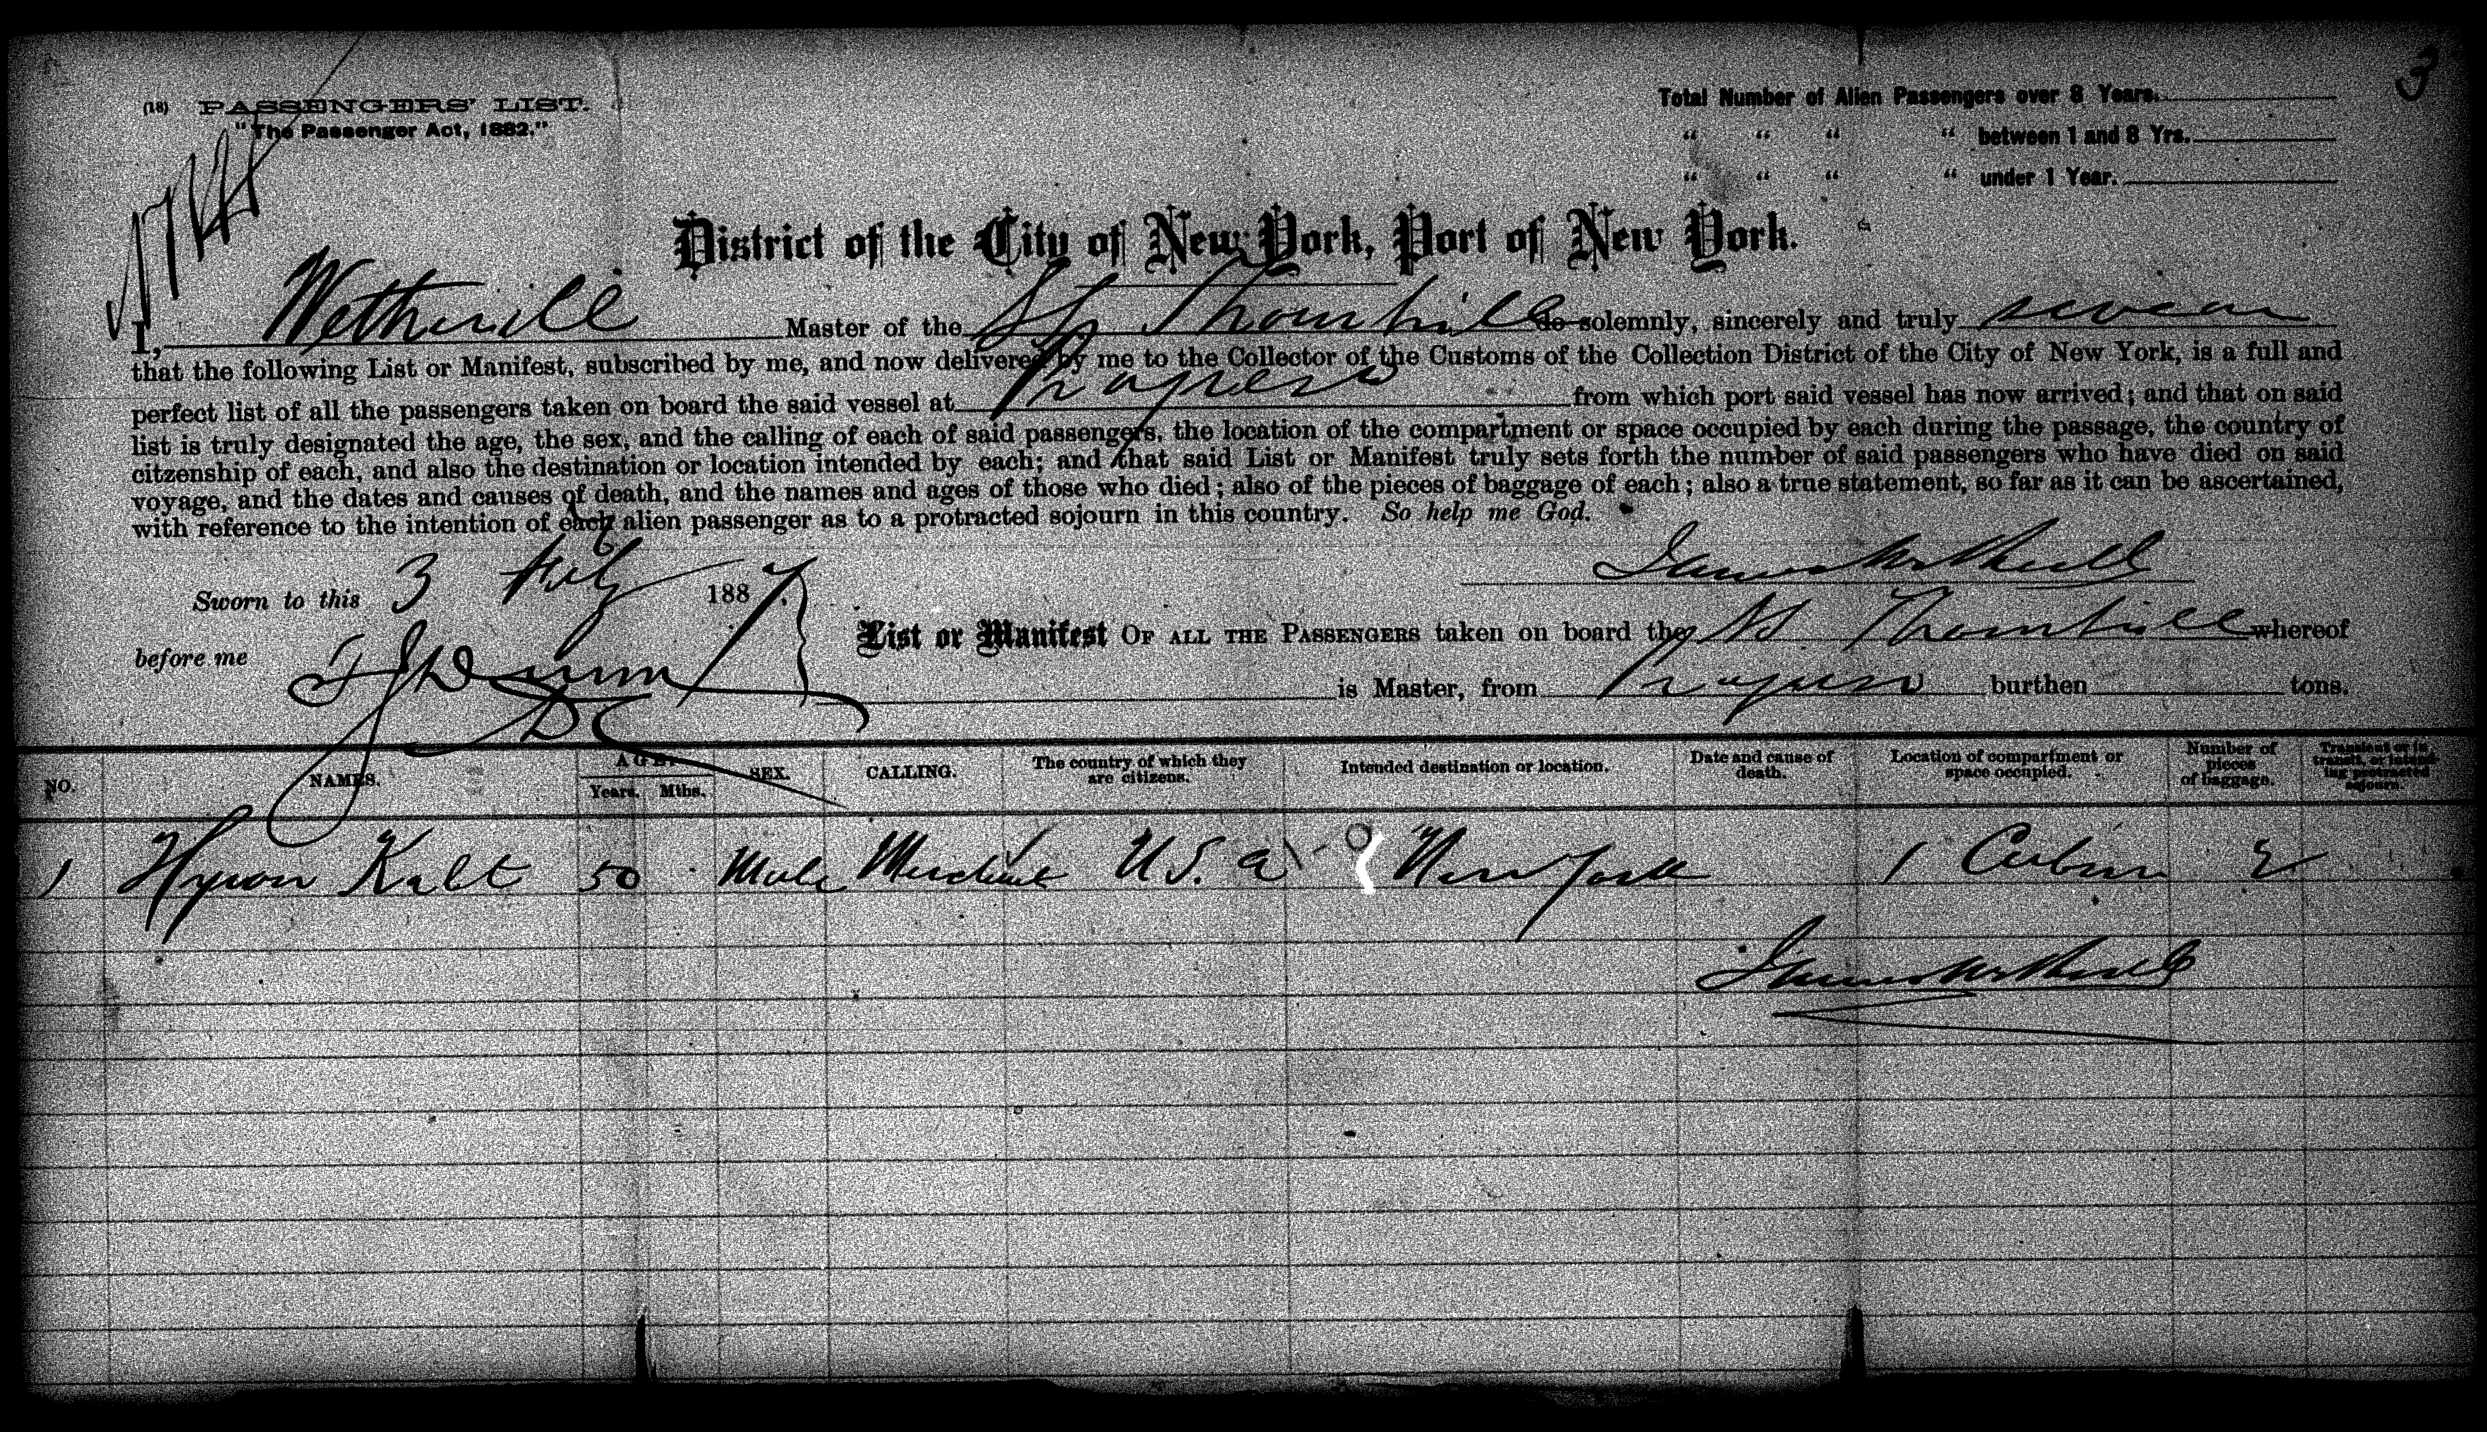 3
(18) PASSENGERS' LIST.
"The Passenger Act, 1882."
Total Number of Alien Passengers over 8 Years.
" " " " between 1 and 8 Yrs.
" " " " under 1 Year.
1744
District of the City of New York, Port of New York.
I, Wetherill Master of the Thornhill do solemnly, sincerely and truly swear
that the following List or Manifest, subscribed by me, and now delivered by me to the Collector of the Customs of the Collection District of the City of New York, is a full and
perfect list of all the passengers taken on board the said vessel at from which port said vessel has now arrived; and that on said
list is truly designated the age, the sex, and the calling of each of said passengers, the location of the compartment or space occupied by each during the passage, the country of
citzenship of each, and also the destination or location intended by each; and that said List or Manifest truly sets forth the number of said passengers who have died on said
voyage, and the dates and causes of death, and the names and ages of those who died; also of the pieces of baggage of each; also a true statement, so far as it can be ascertained,
with reference to the intention of each alien passenger as to a protracted sojourn in this country. So help me God.
James Wetherill
Sworn to this 3 July 1887
before me
List or Manifest OF ALL THE PASSENGERS taken on board the Thornhill whereof
is Master, from burthen tons.
NO. NAMES. AGE. Years. Mths. SEX. CALLING. The country of which they are citizens. Intended destination or location. Date and cause of death. Location of compartment or space occupied. Number of pieces of baggage. Transient or in transit, or intending protracted sojourn.
1 Kalt 50 Male Merchant U.S.a New York 1 Cabin 2
James Wetherill